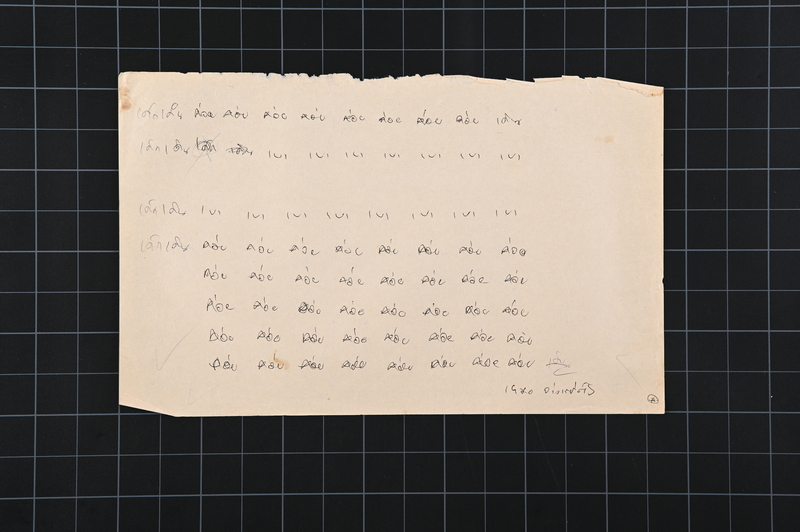 เด็กเดิน ค่อย ค่อย ค่อย ค่อย ค่อย ค่อย ค่อย ค่อย เดิน
เด็กเดิน เบา เบา เบา เบา เบา เบา เบา
เด็กเดิน เบา เบา เบา เบา เบา เบา เบา เบา
เด็กเดิน ค่อย ค่อย ค่อย ค่อย ค่อย ค่อย ค่อย ค่อย
ค่อย ค่อย ค่อย ค่อย ค่อย ค่อย ค่อย ค่อย
ค่อย ค่อย ค่อย ค่อย ค่อย ค่อย ค่อย ค่อย
ค่อย ค่อย ค่อย ค่อย ค่อย ค่อย ค่อย ค่อย
ค่อย ค่อย ค่อย ค่อย ค่อย ค่อย ค่อย ค่อย เดิน
จ่างแซ่ตั้ง